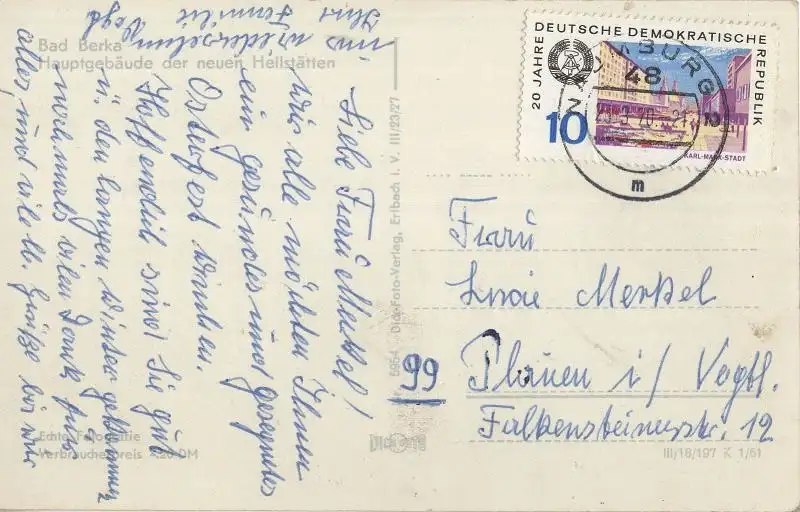 Bad Berka
Hauptgebäude der neuen Heilstätten
Liebe Frau Merkel!
Wir alle möchten Ihnen
ein gesundes und gesegnetes
Osterfest wünschen.
Hoffentlich sind Sie gut
ü. den langen Winter gekommen
nochmals vielen Dank für
alles und viele h. Grüße bis wir
uns wiedersehen
Ihre Familie Vogt
Echte Fotografie
Verbraucherpreis -,20 DM
5954 Dick-Foto-Verlag, Erlbach i. V. III/23/27
DICK
20 JAHRE DEUTSCHE DEMOKRATISCHE REPUBLIK
10
KARL-MARX-STADT
NAUMBURG
48
70
m
Frau
Merkel
99 Plauen i/ Vogtl.
Falkensteinerstr. 12
III/18/197 K 1/61